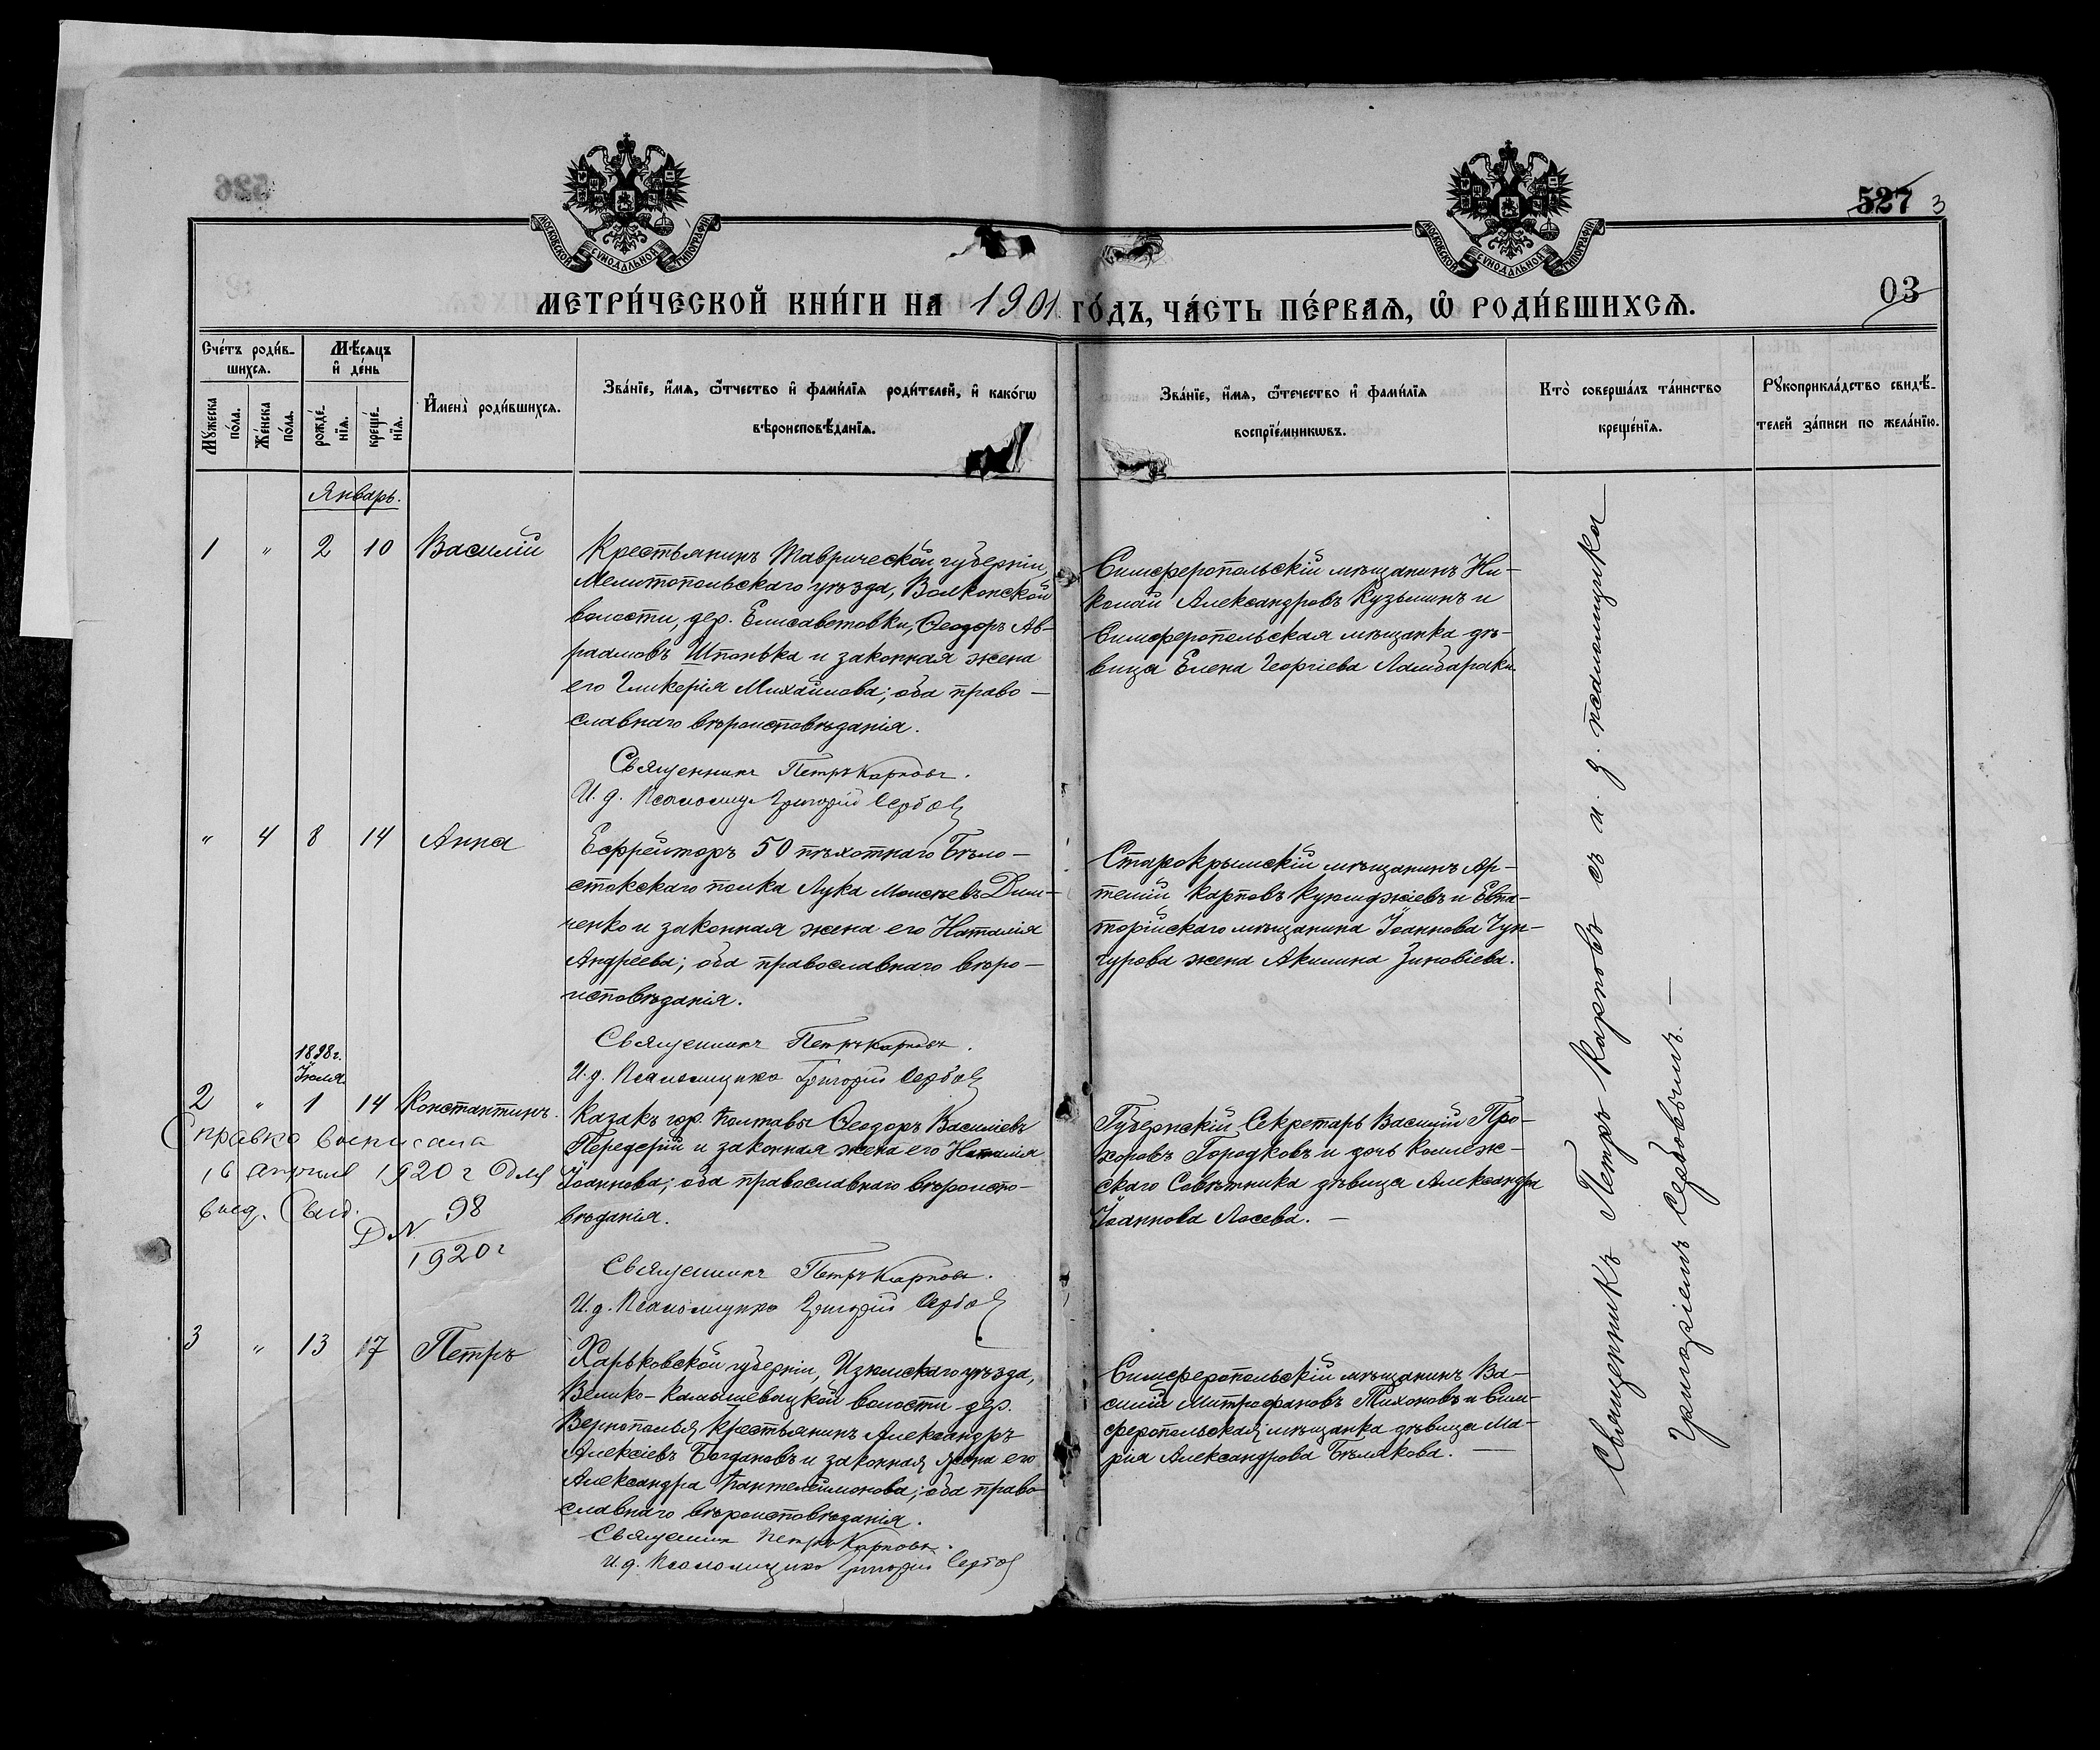 527 3
03
МОСКОВСКОЙ СѴНОДАЛЬНОЙ ТИПОГРАФІИ
МОСКОВСКОЙ СѴНОДАЛЬНОЙ ТИПОГРАФІИ
МЕТРИ́ЧЕСКОЙ КНИ́ГИ НА 1901 ГО́ДЪ, ЧА́СТЬ ПЕ́РВАѦ, Ѽ РОДИ́ВШИХСѦ.
Сче́тъ роди́в-
шихсѧ.
Мѣ́сѧцъ
и҆ де́нь
Мꙋ́жеска
по́ла.
Же́нска
по́ла.
рожде́-
нїѧ.
креще́-
нїѧ.
И҆мена̀ роди́вшихсѧ.
Зва́нїе, и҆́мѧ, ѻ҆́тчество и҆ фами́лїѧ роди́телей, и҆ како́гѡ
вѣроисповѣ́данїѧ.
Зва́нїе, и҆́мѧ, ѻ҆́течество и҆ фами́лїѧ
воспрїе́мникѡвъ.
Кто̀ соверша́лъ та́инство
креще́нїѧ.
Рꙋкоприкла́дство свидѣ́-
телей за́писи по жела́нїю.
Январь.
1 " 2 10 Василій
Крестьянинъ Таврической губерніи,
Мелитопольскаго уѣзда, Волконской
волости, дер. Елисаветовки, Ѳеодоръ Ав-
раамовъ Шпонька и законная жена
его Гликерія Михайлова; оба право-
славнаго вѣроисповѣданія.
Священникъ Петръ Карповъ.
И. д. Псаломщ. Григорій Сербовъ
Симферопольскій мѣщанинъ Ни-
колай Александровъ Кузьминъ и
Симферопольская мѣщанка дѣ-
вица Елена Георгіева Ламбараки
" 4 8 14 Анна
Ефрейторъ 50 пѣхотнаго Бѣло-
стокскаго полка Лука Моисеевъ Дим-
ченко и законная жена его Наталія
Андреева; оба православнаго вѣро-
исповѣданія.
Священникъ Петръ Карповъ.
И. д. Псаломщика Григорій Сербовъ
Старокрымскій мѣщанинъ Ар-
темій Карповъ и Евпа-
торійскаго мѣщанина Іоаннова Чун-
гурова жена Акилина Зиновіева.
1898 г.
Іюля.
2 " 1 14 Константинъ.
Справка выписана
16 апреля 1920 г для
выд. свид.
Д N 98
1920 г
Казакъ гор. Полтавы Ѳеодоръ Василіевъ
Передерій и законная жена его Наталія
Іоаннова; оба православнаго вѣроиспо-
вѣданія.
Священникъ Петръ Карповъ.
И. д. Псаломщика Григорій Сербовъ
Губернскій Секретарь Василій Про-
хоровъ Городковъ и дочь коллеж-
скаго Совѣтника дѣвица Александра
Іоаннова Лосева. —
3 " 13 17 Петръ
Харьковской губерніи, Изюмскаго уѣзда,
Велико-Камышевацкой волости дер.
Вернополья крестьянинъ Александръ
Алексіевъ Богдановъ и законная жена его
Александра Пантелеймонова; оба право-
славнаго вѣроисповѣданія.
Священникъ Петръ Карповъ.
И. д. Псаломщика Григорій Сербовъ
Симферопольскій мѣщанинъ Ва-
силій Митрофановъ Тихоновъ и Сим-
феропольская мѣщанка дѣвица Ма-
рія Александрова Бѣлякова. —
Священникъ Петръ Карповъ съ и. д. псаломщика
Григоріемъ Сербовымъ. —